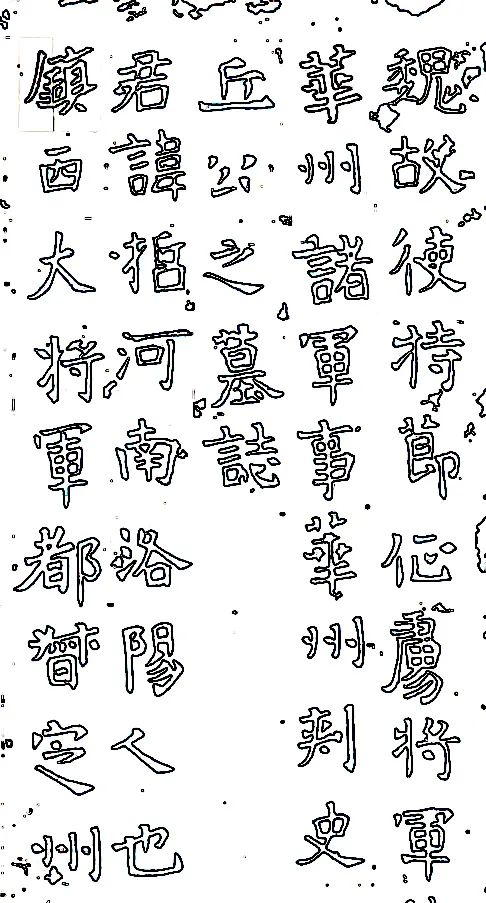 魏故使持節征虜将軍
華州諸軍事華州刺史
丘公之墓誌
君諱河南洛陽人也
鎮西大将軍都督定州